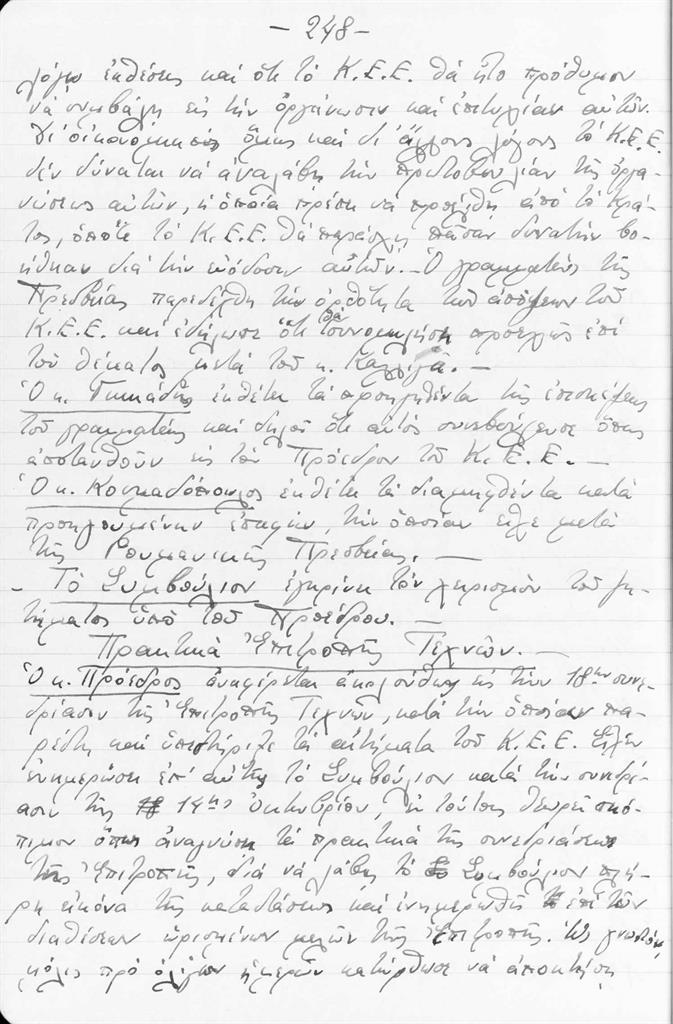 - 248 -
λόγω ἐκθέσεις καί ὅτι τό Κ.Ε.Ε. θά ἦτο πρόθυμον
νά συμβάλῃ εἰς τήν ὀργάνωσιν καί ἐπιτυχίαν αὐτῶν.
Δι' οἰκονομικούς ὅμως καί δι' ἄλλους λόγους τό Κ.Ε.Ε.
δέν δύναται νά ἀναλάβῃ τήν πρωτοβουλίαν τῆς ὀργα-
νώσεως αὐτῶν, ἡ ὁποία πρέπει νά προέλθῃ ἀπό τό Κρά-
τος, ὁπότε τό Κ.Ε.Ε. θά παράσχῃ πᾶσαν δυνατήν βο-
ήθειαν διά τήν εὐόδωσιν αὐτῶν. - Ὁ γραμματεύς τῆς
Πρεσβείας παρεδέχθη τήν ὀρθότητα τῶν ἀπόψεων τοῦ
Κ.Ε.Ε. καί ἐδήλωσε ὅτι θά συνομιλήσῃ προσεχῶς ἐπί
τοῦ θέματος μετά τοῦ κ. Καλλιγᾶ. -
Ὁ κ. ἐκθέτει τά προηγηθέντα τῆς ἐπισκέψεως
τοῦ γραμματέως καί δηλοῖ ὅτι αὐτός συνεβούλευσε ὅπως
ἀποτανθοῦν εἰς τόν Πρόεδρον τοῦ Κ.Ε.Ε. -
Ὁ κ. Κουκαδόπουλος ἐκθέτει τά διαμειφθέντα κατά
προηγουμένην ἐπαφήν, τήν ὁποίαν εἶχε μετά
τῆς Ρουμανικῆς Πρεσβείας. -
- Τό Συμβούλιον ἐγκρίνει τόν χειρισμόν τοῦ ζη-
τήματος ὑπό τοῦ Προέδρου. -
Πρακτικά Ἐπιτροπῆς Τεχνῶν. -
Ὁ κ. Πρόεδρος ἀναφέρεται ἀκολούθως εἰς τήν 18ην συνε-
δρίασιν τῆς Ἐπιτροπῆς Τεχνῶν, κατά τήν ὁποίαν πα-
ρέστη καί ὑπεστήριξε τά αἰτήματα τοῦ Κ.Ε.Ε. Εἶχεν
ἐνημερώσει ἐπ' αὐτῆς τό Συμβούλιον κατά τήν συνεδρί-
ασιν τῆς 14ης Ὀκτωβρίου, ἐν τούτοις θεωρεῖ σκό-
πιμον ὅπως ἀναγνώσῃ τά πρακτικά τῆς συνεδριάσεως
τῆς Ἐπιτροπῆς, διά νά λάβῃ τό Συμβούλιον πλή-
ρη εἰκόνα τῆς καταστάσεως καί ἐνημερωθῇ ἐπί τῶν
διαθέσεων ὡρισμένων μελῶν τῆς Ἐπιτροπῆς. Ὡς γνωστόν,
μόλις πρό ὀλίγων ἡμερῶν κατώρθωσε νά ἀποκτήσῃ